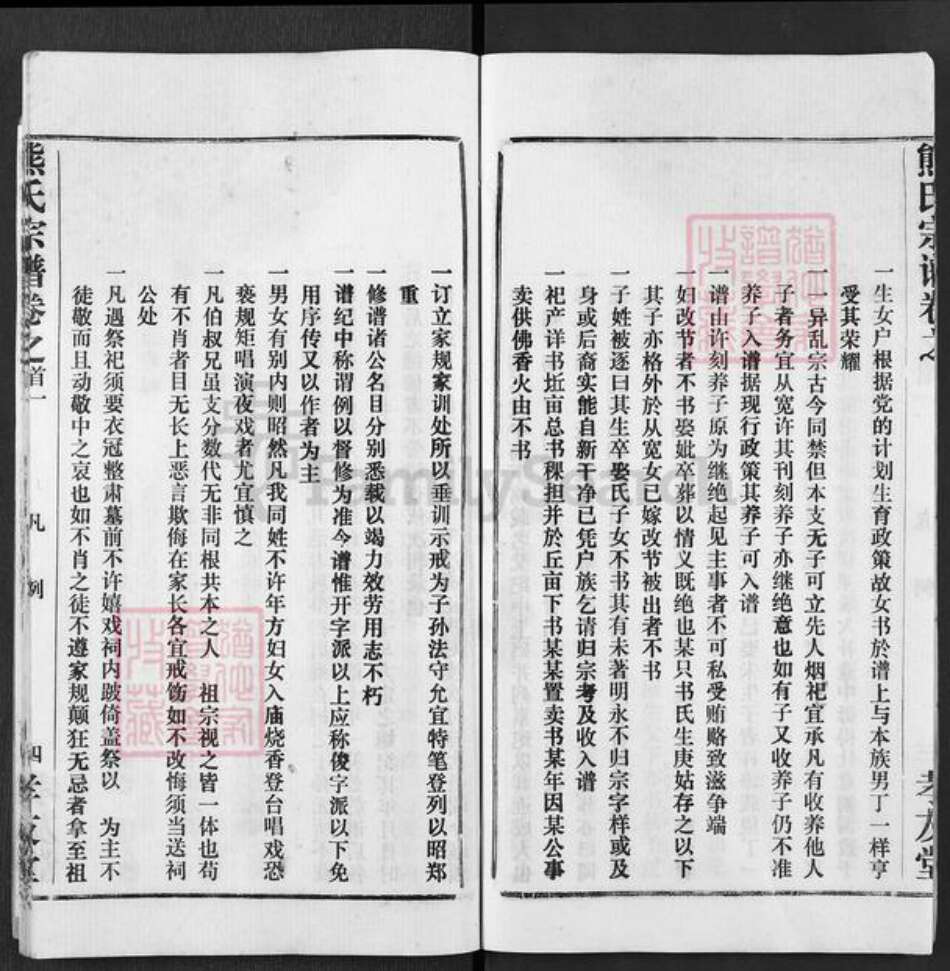 熊氏宗谱卷之
孝友堂
一生女户根据党的计划生育政策故女书於谱上与本族男丁一样享
受其荣耀
一异乱宗古今同禁但本支无子可立先人烟祀宜承凡有收养他人
子者务宜从宽许其刊刻养子亦继绝意也如有子又收养子仍不准
养子入谱据现行政策其养子可入谱
一谱由许刻养子原为继绝起见主事者不可私受贿赂致滋争端
一妇改节者不书娶妣卒葬以情义既绝也某只书氏生庚姑存之以下
其子亦格外於从宽女已嫁改节被出者不书
一子姓被逐曰其生卒娶氏子女不书其有未著明永不归宗字样或及
身或后裔实能自新干净已凭户族乞请归宗考及收入谱
一祀产详书坵亩总书稞担并於丘亩下书某某置卖书某年因某公事
卖供佛香火由不书
一订立家规家训处所以垂训示戒为子孙法守允宜特笔登列以昭郑
重
一修谱诸公名目分别悉载以竭力效劳用志不朽
一谱纪中称谓例以督修为准今谱惟开字派以上应称俊字派以下免
用序传又以作者为主
一男女有别内则昭然凡我同姓不许年方妇女入庙烧香登台唱戏恐
亵规矩唱演夜戏者尤宜慎之
一凡伯叔兄虽支分数代无非同根共本之人 祖宗视之皆一体也苟
有不肖者目无长上恶言欺侮在家长各宜戒饬如不改悔须当送祠
公处
一凡遇祭祀须要衣冠整肃墓前不许嬉戏祠内跛倚盖祭以 为主不
徒敬而且动敬中之哀也如不肖之徒不遵家规颠狂无忌者拿至祖
熊氏宗谱卷之首一 凡例 四 孝友堂